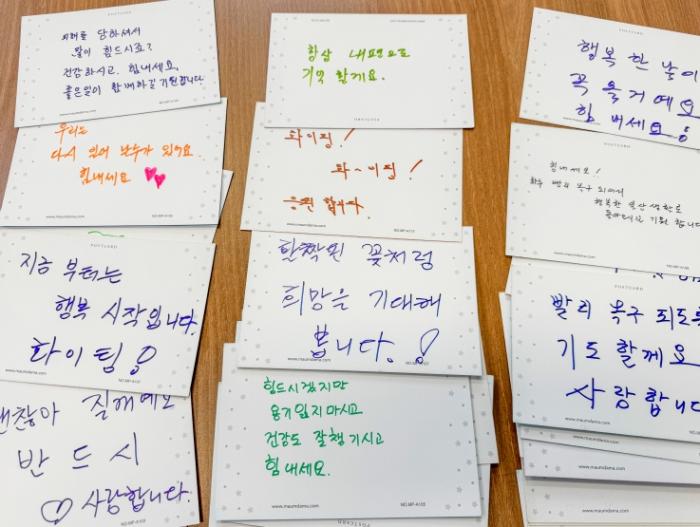 POSTCARD
피해를 당하셔서
많이 힘드시죠?
건강하시고, 힘내세요.
좋은일이 함께하길 기원합니다
www.maumdama.com
우리는
다시 일어 난수가 있어요.
힘내세요
www.maumdama.com
NO.MP-A103
POSTCARD
지금 부터는
행복 시작입니다.
화이팅!
www.maumdama.com
NO.MP-A103
괜찮아 질꺼예요
반드시
사랑합니다.
POSTCARD
항상 내편으로
기억 할게요.
화이팅!
화~이팅!
응원 합니다.
www.maumdama.com
NO.MP-A103
활짝핀 꽃처럼
희망을 기대해
봅니다.!
www.maumdama.com
힘드시겠지만
용기잃지마시고
건강도 잘챙기시고
힘내세요.
www.maumdama.com
NO.MP-A103
POSTCARD
행복 한 날이
꼭 올거예요
힘내세요!
www.maumdama.com
POSTCARD
힘내세요!
빨리 복구 되어서
행복한 일상생활로
기원 합니다
www.maumdama.com
POSTCARD
빨리 복구 되도록
기도 할께요
사랑합니다
www.maumdama.com
www.maumdama.com